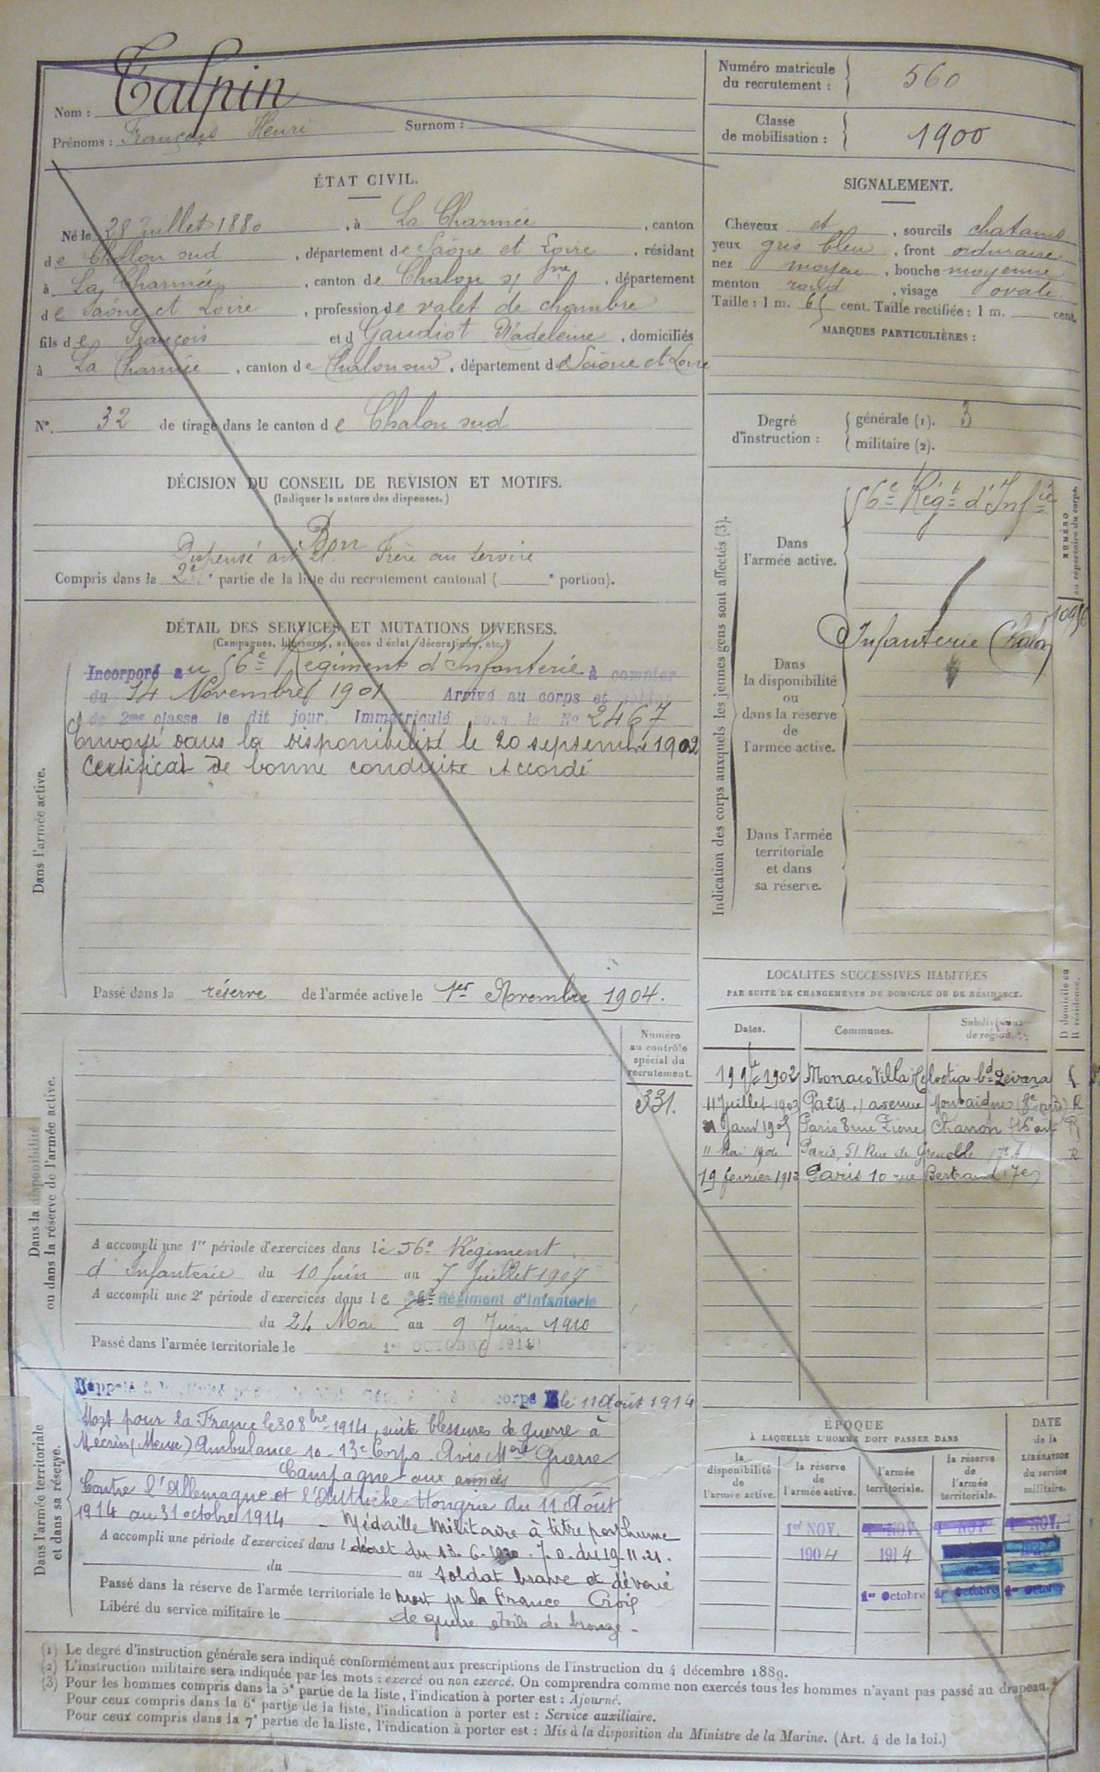 Nom : Talpin
Prénoms : François Henri Surnom :
Numéro matricule du recrutement : 560
Classe de mobilisation : 1900
ÉTAT CIVIL.
Né le 28 Juillet 1880, à La Charmée, canton
de Chalon sud, département de Saône et Loire, résidant
à La Charmée, canton de Chalon s/ Sne, département
de Saône et Loire, profession de valet de chambre
fils de François et d Gaudiot Madeleine, domiciliés
à La Charmée, canton de Chalon sud, département de Saône et Loire
N°. 32 de tirage dans le canton de Chalon sud
SIGNALEMENT.
Cheveux et, sourcils chatains
yeux gris bleu, front ordinaire
nez moyen, bouche moyenne
menton rond, visage ovale
Taille : 1 m. 65 cent. Taille rectifiée : 1 m. cent.
MARQUES PARTICULIÈRES :
Degré d'instruction : générale (1). 3
militaire (2).
DÉCISION DU CONSEIL DE REVISION ET MOTIFS.
(Indiquer la nature des dispenses.)
Bon
Dispensé art 21. Frère au service
Compris dans la 2e partie de la liste du recrutement cantonal ( e portion).
DÉTAIL DES SERVICES ET MUTATIONS DIVERSES.
(Campagnes, blessures, actions d'éclat, décorations, etc.)
Dans l'armée active.
Incorporé au 56e Régiment d'Infanterie à compter
du 14 Novembre 1901 Arrivé au corps et soldat
de 2me classe le dit jour, Immatriculé sous le No 2467
Envoyé dans la disponibilité le 20 septembre 1902
Certificat de bonne conduite Accordé
Passé dans la réserve de l'armée active le 1er Novembre 1904.
Indication des corps auxquels les jeunes gens sont affectés (3).
Dans l'armée active.
56e Régt d'Infie
NUMÉRO au répertoire du corps.
Dans la disponibilité ou dans la réserve de l'armée active.
Infanterie Chalon
Dans l'armée territoriale et dans sa réserve.
LOCALITÉS SUCCESSIVES HABITÉES
PAR SUITE DE CHANGEMENTS DE DOMICILE OU DE RÉSIDENCE.
Dates. Communes. Subdivisions de région. D domicile ou R résidence.
1902 Monaco Villa
11 Juillet 1903 Paris, 11 avenue Montaigne R
Janv Paris 8 rue Pierre Charron R
11 Mai Paris, 51 Rue de Grenelle (7e A) R
19 février 1913 Paris 10 rue Bertrand 7e
Dans la disponibilité ou dans la réserve de l'armée active.
Numéro au contrôle spécial du recrutement.
331.
A accompli une 1re période d'exercices dans le 56e Régiment
d'Infanterie du 10 Juin au 7 Juillet 1907
A accompli une 2e période d'exercices dans le Régiment d'Infanterie
du 24 Mai au 9 Juin 1910
Passé dans l'armée territoriale le 1er OCTOBRE 1914
Dans l'armée territoriale et dans sa réserve.
Rappelé corps le 11 Août 1914
Mort pour la France le 30 8bre 1914, suite blessures de guerre à
Mécrin (Meuse) Ambulance 10 - 13e Corps. Avis Mel Guerre
Campagne aux armées
Contre l'Allemagne et l'Autriche Hongrie du 11 Août
1914 au 31 octobre 1914 Médaille Militaire à titre posthume
A accompli une période d'exercices dans l décret du 13.6.1920. J.O. du 19.11.21.
du au Soldat brave et dévoué
Passé dans la réserve de l'armée territoriale le Mort pr la France Croix
Libéré du service militaire le de guerre étoile de bronze.
ÉPOQUE
À LAQUELLE L'HOMME DOIT PASSER DANS
la disponibilité de l'armée active. la réserve de l'armée active. l'armée territoriale. la réserve de l'armée territoriale. DATE de la LIBÉRATION du service militaire.
1er NOV. 1er NOV. 1er NOV 1er NOV.
1904 1914
1er Octobre 1er Octobre 1er Octobre
(1) Le degré d'instruction générale sera indiqué conformément aux prescriptions de l'instruction du 4 décembre 1889.
(2) L'instruction militaire sera indiquée par les mots : exercé ou non exercé. On comprendra comme non exercés tous les hommes n'ayant pas passé au drapeau.
(3) Pour les hommes compris dans la 5e partie de la liste, l'indication à porter est : Ajourné.
Pour ceux compris dans la 6e partie de la liste, l'indication à porter est : Service auxiliaire.
Pour ceux compris dans la 7e partie de la liste, l'indication à porter est : Mis à la disposition du Ministre de la Marine. (Art. 4 de la loi.)